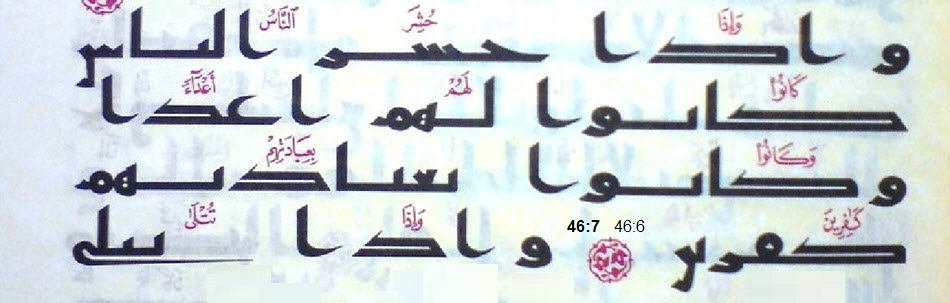 وَإِذَا حُشِرَ النَّاسُ
واذا حشر الناس
كَانُوا۟ لَهُمْ أَعْدَآءً
كانوا لهم اعدا
وَكَانُوا۟ بِعِبَادَتِهِمْ
وكانوا بعبادتهم
كَٰفِرِينَ 46:6 46:7 وَإِذَا تُتْلَىٰ
كفرين واذا تتلى